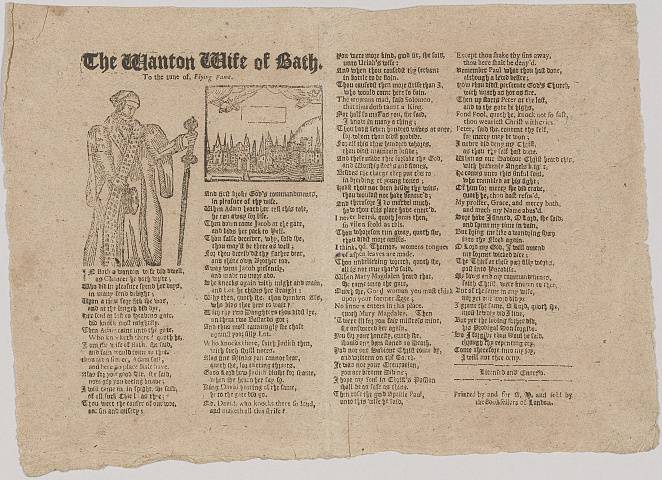 The Wanton Wife of Bath.
To the tune of, Flying Fame.
IN Bath a wanton wife did dwell,
as Chaucer he doth write;
Who did in pleasure spend her days,
in many fond delight:
Upon a time sore sick she was,
and at the length did dye,
Her Soul at last at heavens gate,
did knock most mightily.
Then Adam came unto the gate,
Who knocketh there? quoth he,
I am the wife of Bath, she said,
and fain would come to thee.
Thou art a sinner, Adam said,
and here no place shall have,
And so art thou,
now
I will come in,
of all such
Thou wert the causer of our woe,
and misery;
And first broke God's commandments,
in pleasure of thy wife.
When Adam heard her tell this tale,
he ran away for life.
Then down came Jacob at the gate,
and bids her pack to Hell.
Thou false deceiver, why, said she,
thou may'st be there as well:
For thou deceiv'd thy father dear,
and thine own Brother too.
Away went Jacob presently,
and made no more ado.
She knocks again with might and main,
and Lot he chides her straight:
Why then, quoth she, thou drunken Ass,
who bids thee here to wait?
With thy two Daughters thou didst lye,
on them two Bastards got:
And thus most tauntingly she chaft
against poor silly Lot.
Who knocks there, saith Judith then,
with such shrill notes.
This
quoth she, for
Good Lord how Judith blusht for shame,
when she heard her say so.
King David hearing of the same,
he to the gate did go.
Quoth David, who knocks there so loud,
and maketh all this strife?
You were more kind, good sir, she said,
unto Uriah's wife:
And when thou caused'st thy servant
in battle to be slain,
Thou caused'st then more strife than I,
who would come here so fain.
The woman's mad, said Solomon,
that thus doth taunt a King.
Not half so mad as you, she said,
I trow in many a thing:
Thou hadst seven hundred wives at once,
for whom thou didst provide.
For all this three hundred whores,
thou didst maintain beside:
And these made thee forsake thy God,
and Worship stocks and stones,
Besides the charge they put thee to
in breeding of young bones;
Hadst thou not been beside thy wits,
thou wouldst not have ventur'd:
And therefore I do marvel much,
how thou this place have enter'd.
I never heard, quoth Jonas then,
so vile a scold as this.
Thou whoreson run away, quoth she,
thou didst more amiss.
I think, qd. Thomas, womens tongues
of aspen leaves are made.
Thou unbelieving wretch, quoth she,
all is not true that's said.
When Mary Magdalen heard that,
she came unto the gate,
Quoth she, Good woman you must think
upon your former State;
No sinner enters in this place,
quoth Mary Magdalen. Then
'Twere ill for you fair mistress mine,
he answer'd her again.
You for your honesty, quoth she,
should have been stoned to Death,
Had not our Saviour Christ come by,
and written on the Earth.
It was not your Occupation,
you are become Divine;
I hope my soul in Christ's Passion
shall be as safe as thine.
Then rose the good Apostle Paul,
unto this wife he said,
Except thou shake thy sins away,
thou here shalt be deny'd.
Remember Paul what thou hast done,
although a lewd desire:
How thou didst persecute God's Church,
with wrath as hot as fire.
Then up starts Peter at the last,
and to the gate he highs,
Fond Fool, quoth he, knock not so fast,
thou weariest Christ with cries.
Peter, said she, content thy self,
for mercy may be won;
I never did deny my Christ,
as thou thy self hast done.
When as our Saviour Christ heard this,
with heavenly Angels bright,
He comes unto this sinful soul,
who trembled at his sight;
Of him for mercy she did crave,
quoth he, thou hast refus'd
My proffer, Grace, and mercy both,
and much my Name abus'd.
Sore have I sinned, O Lord, he said,
and spent my time in vain,
But bring me like a wandring sheep
into thy flock again.
O Lord my God, I will amend
my former wicked vice:
The Thief at these poor silly words,
past into Paradise.
My laws and my commandments,
saith Christ, were known to thee,
But of the same in any wise,
not yet one word did ye
I grant the same, O Lord, quoth she,
most lewdly did I live,
But yet the loving father did,
his Prodigal Son forgive.
So I forgive thy soul, he said,
through thy repenting cry,
Come therefore into my joy,
I will not thee deny.
Licensed and Entered.
Printed by and for W. O. and sold by
the Booksellers of London.